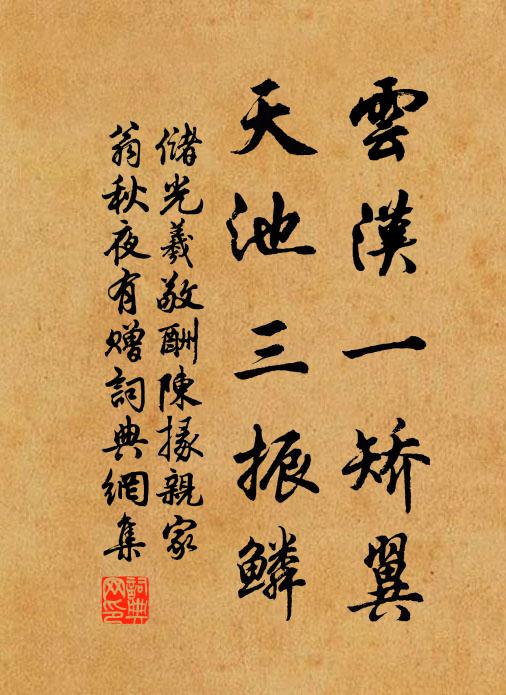 雲漢一矯翼
天池三振鱗
儲光羲敬酬陳掾親家
翁秋夜有贈詞典網集
詞典網印